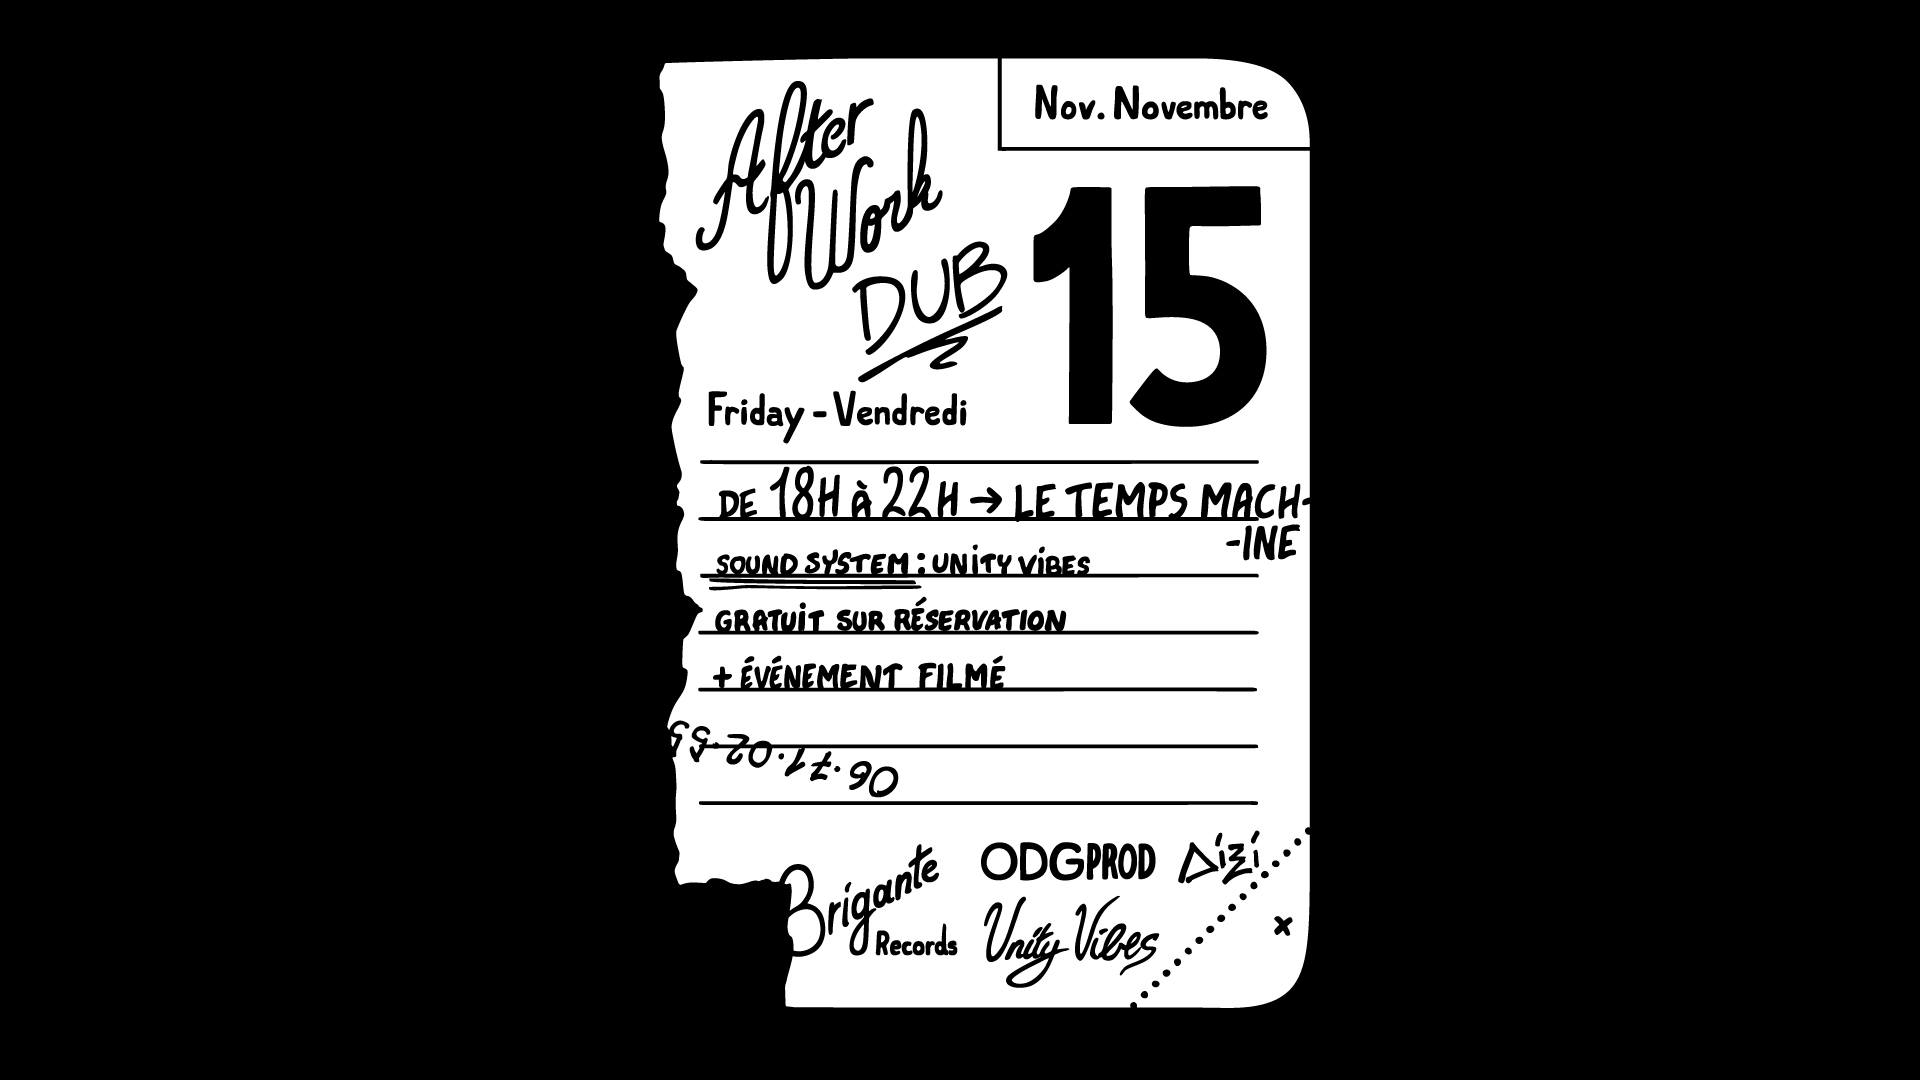 After
Work
DUB
Nov. Novembre
15
Friday - Vendredi
DE 18H À 22H → LE TEMPS MACH-
-INE
SOUND SYSTEM : UNITY VIBES
GRATUIT SUR RÉSERVATION
+ ÉVÉNEMENT FILMÉ
06.71.02.55
Brigante
Records
ODGPROD
Dizi
Unity Vibes
x